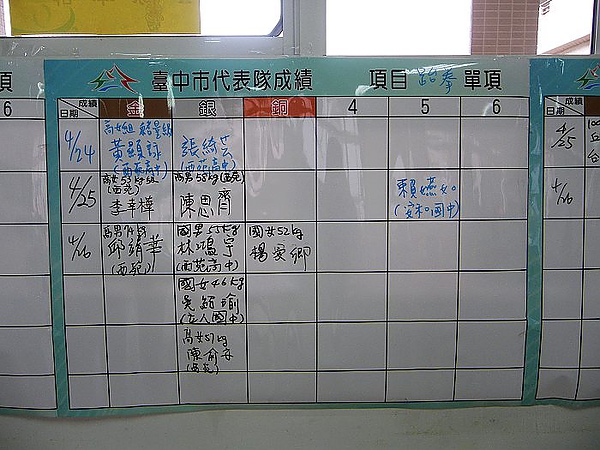 項
6
臺中市代表隊成績 項目 跆拳 單項
成績
日期
金 銀 銅 4 5 6
4/24
黃顯詠
(西苑高中)
張綺芸
(西苑高中)
4/25
(西苑)
李幸樺
高男58kg(西苑)
陳思齊
賴嬿如
(安和國中)
4/26
邱靖華
(西苑)
國男55kg
林鴻宇
(西苑高中)
國女52kg
楊愛卿
國女46kg
(立人國中)
高女51kg
(西苑)
成績
日期
4/25
4/26